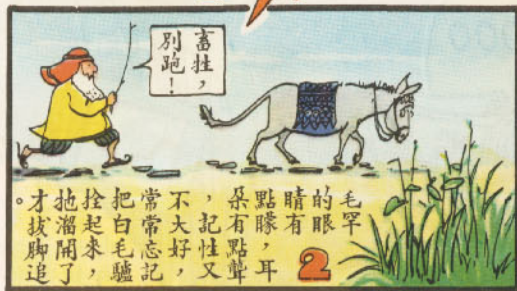 畜牲，
別跑！
毛罕
的眼
睛有
點矇，耳
朵有點聾
，記性又
不大好，
常常忘記
把白毛驢
拴起來，
牠溜開了
才拔脚追
。
2